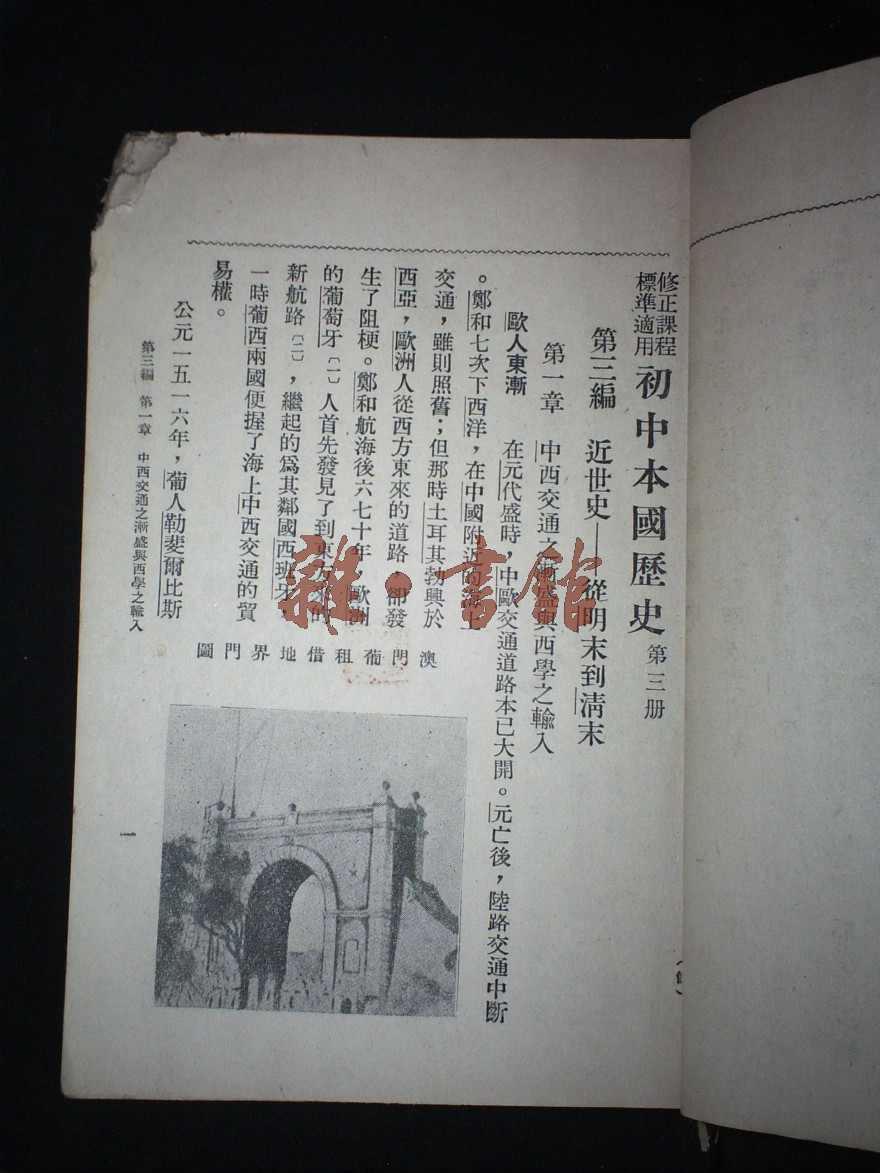 修正課程
標準適用
初中本國歷史 第三册
第三編 近世史——從明末到清末
第一章 中西交通之漸盛與西學之輸入
歐人東漸 在元代盛時，中歐交通道路本已大開。元亡後，陸路交通中斷
。鄭和七次下西洋，在中國附近的海上
交通，雖則照舊；但那時土耳其勃興於
西亞，歐洲人從西方東來的道路，卻發
生了阻梗。鄭和航海後六七十年，歐洲
的葡萄牙〔一〕人首先發見了到東方來的
新航路〔二〕，繼起的爲其鄰國西班牙，
一時葡西兩國便握了海上中西交通的貿
易權。
公元一五一六年，葡人勒斐爾比斯
澳門葡租借地界門圖
第三編 第一章 中西交通之漸盛與西學之輸入
一
雜·書館